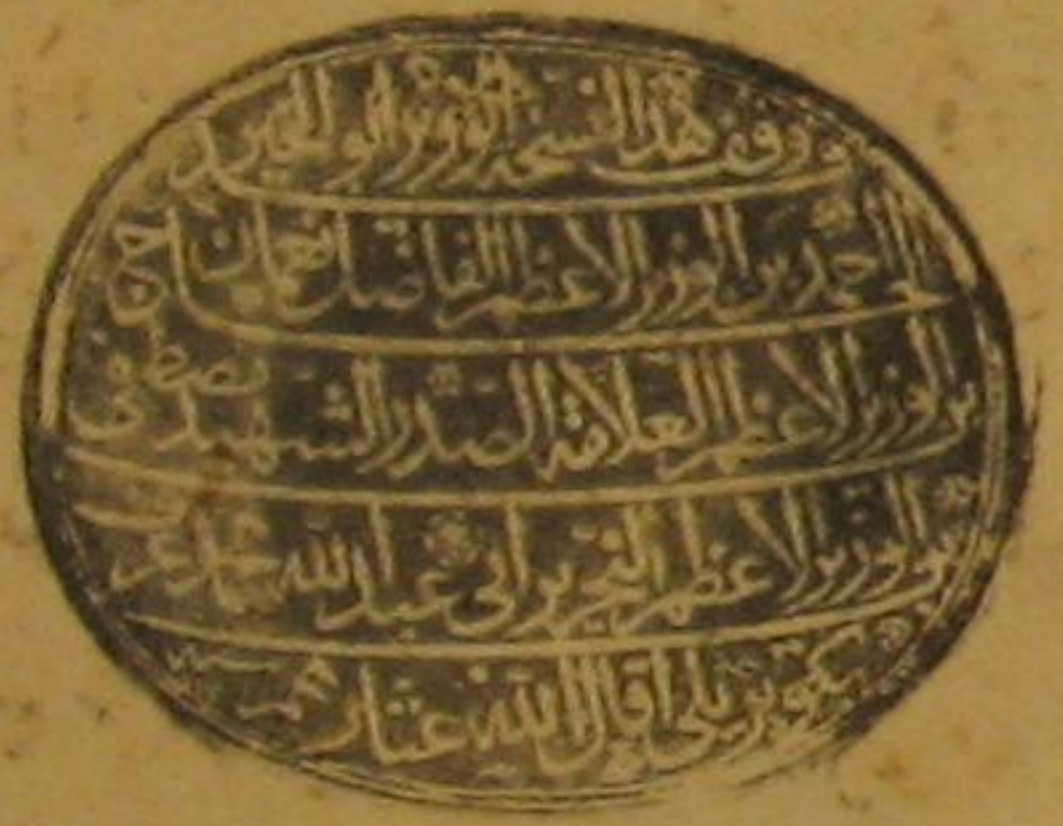 وقف هذا النسخه الوزير ابو الخير
الحاج احمد بن الوزير الاعظم الفاضل نعمان
بن الوزير الاعظم العلامة الصدر الشهيد مصطفى
بن الوزير الاعظم النحرير ابى عبد الله محمد عرف
بكوبريلى اقال الله عثارهم